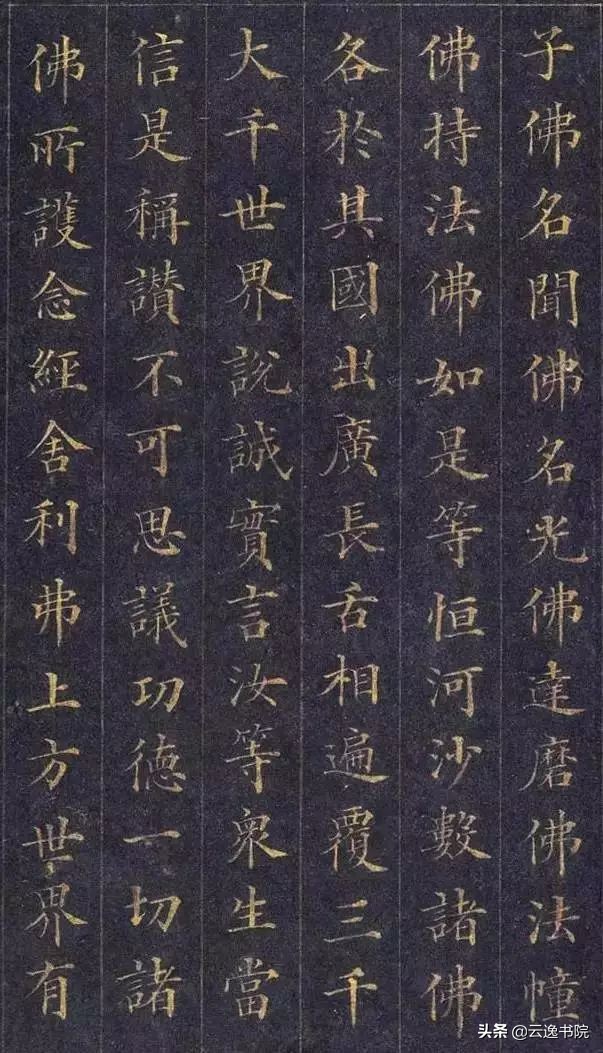 子佛名聞佛名光佛達磨佛法幢
佛持法佛如是等恒河沙數諸佛
各於其國出廣長舌相遍覆三千
大千世界說誠實言汝等衆生當
信是稱讚不可思議功德一切諸
佛所護念經舍利弗上方世界有
头条@云逸书院